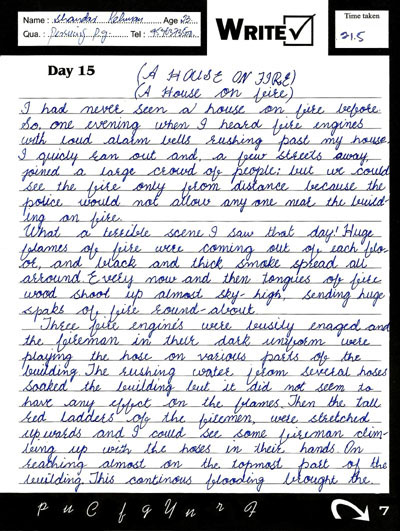 Name : Shandar Age 23
Qua. : Tel :
WRITE
Time taken
21.5
Day 15
(A HOUSE ON FIRE)
(A House on fire)
I had never seen a house on fire before.
So, one evening when I heard fire engines
with loud alarm bells rushing past my house.
I quicly ran out and, a few streets away,
joined a large crowd of people; but we could
see the fire only from distance because the
police would not allow any one near the build-
ing on fire.
What a terrible scene I saw that day! Huge
flames of fire were coming out of each flo-
or, and black and thick smoke spread all
arround. Every now and then tongies of fire
wood shoot up almost sky-high, sending huge
spaks of fire round-about.
Three fire engines were busily enaged and
the fireman in their dark uniform were
playing the hose on various parts of the
building. The rushing water from several hoses
soaked the building but it did not seem to
have any effect on the flames. Then the tall
red ladders of the filemen, were stretched
upwards and I could see some fireman clim-
bing up with the hoses in their hands. On
reaching almost on the topmost part of the
building. This continous flooding brought the
7